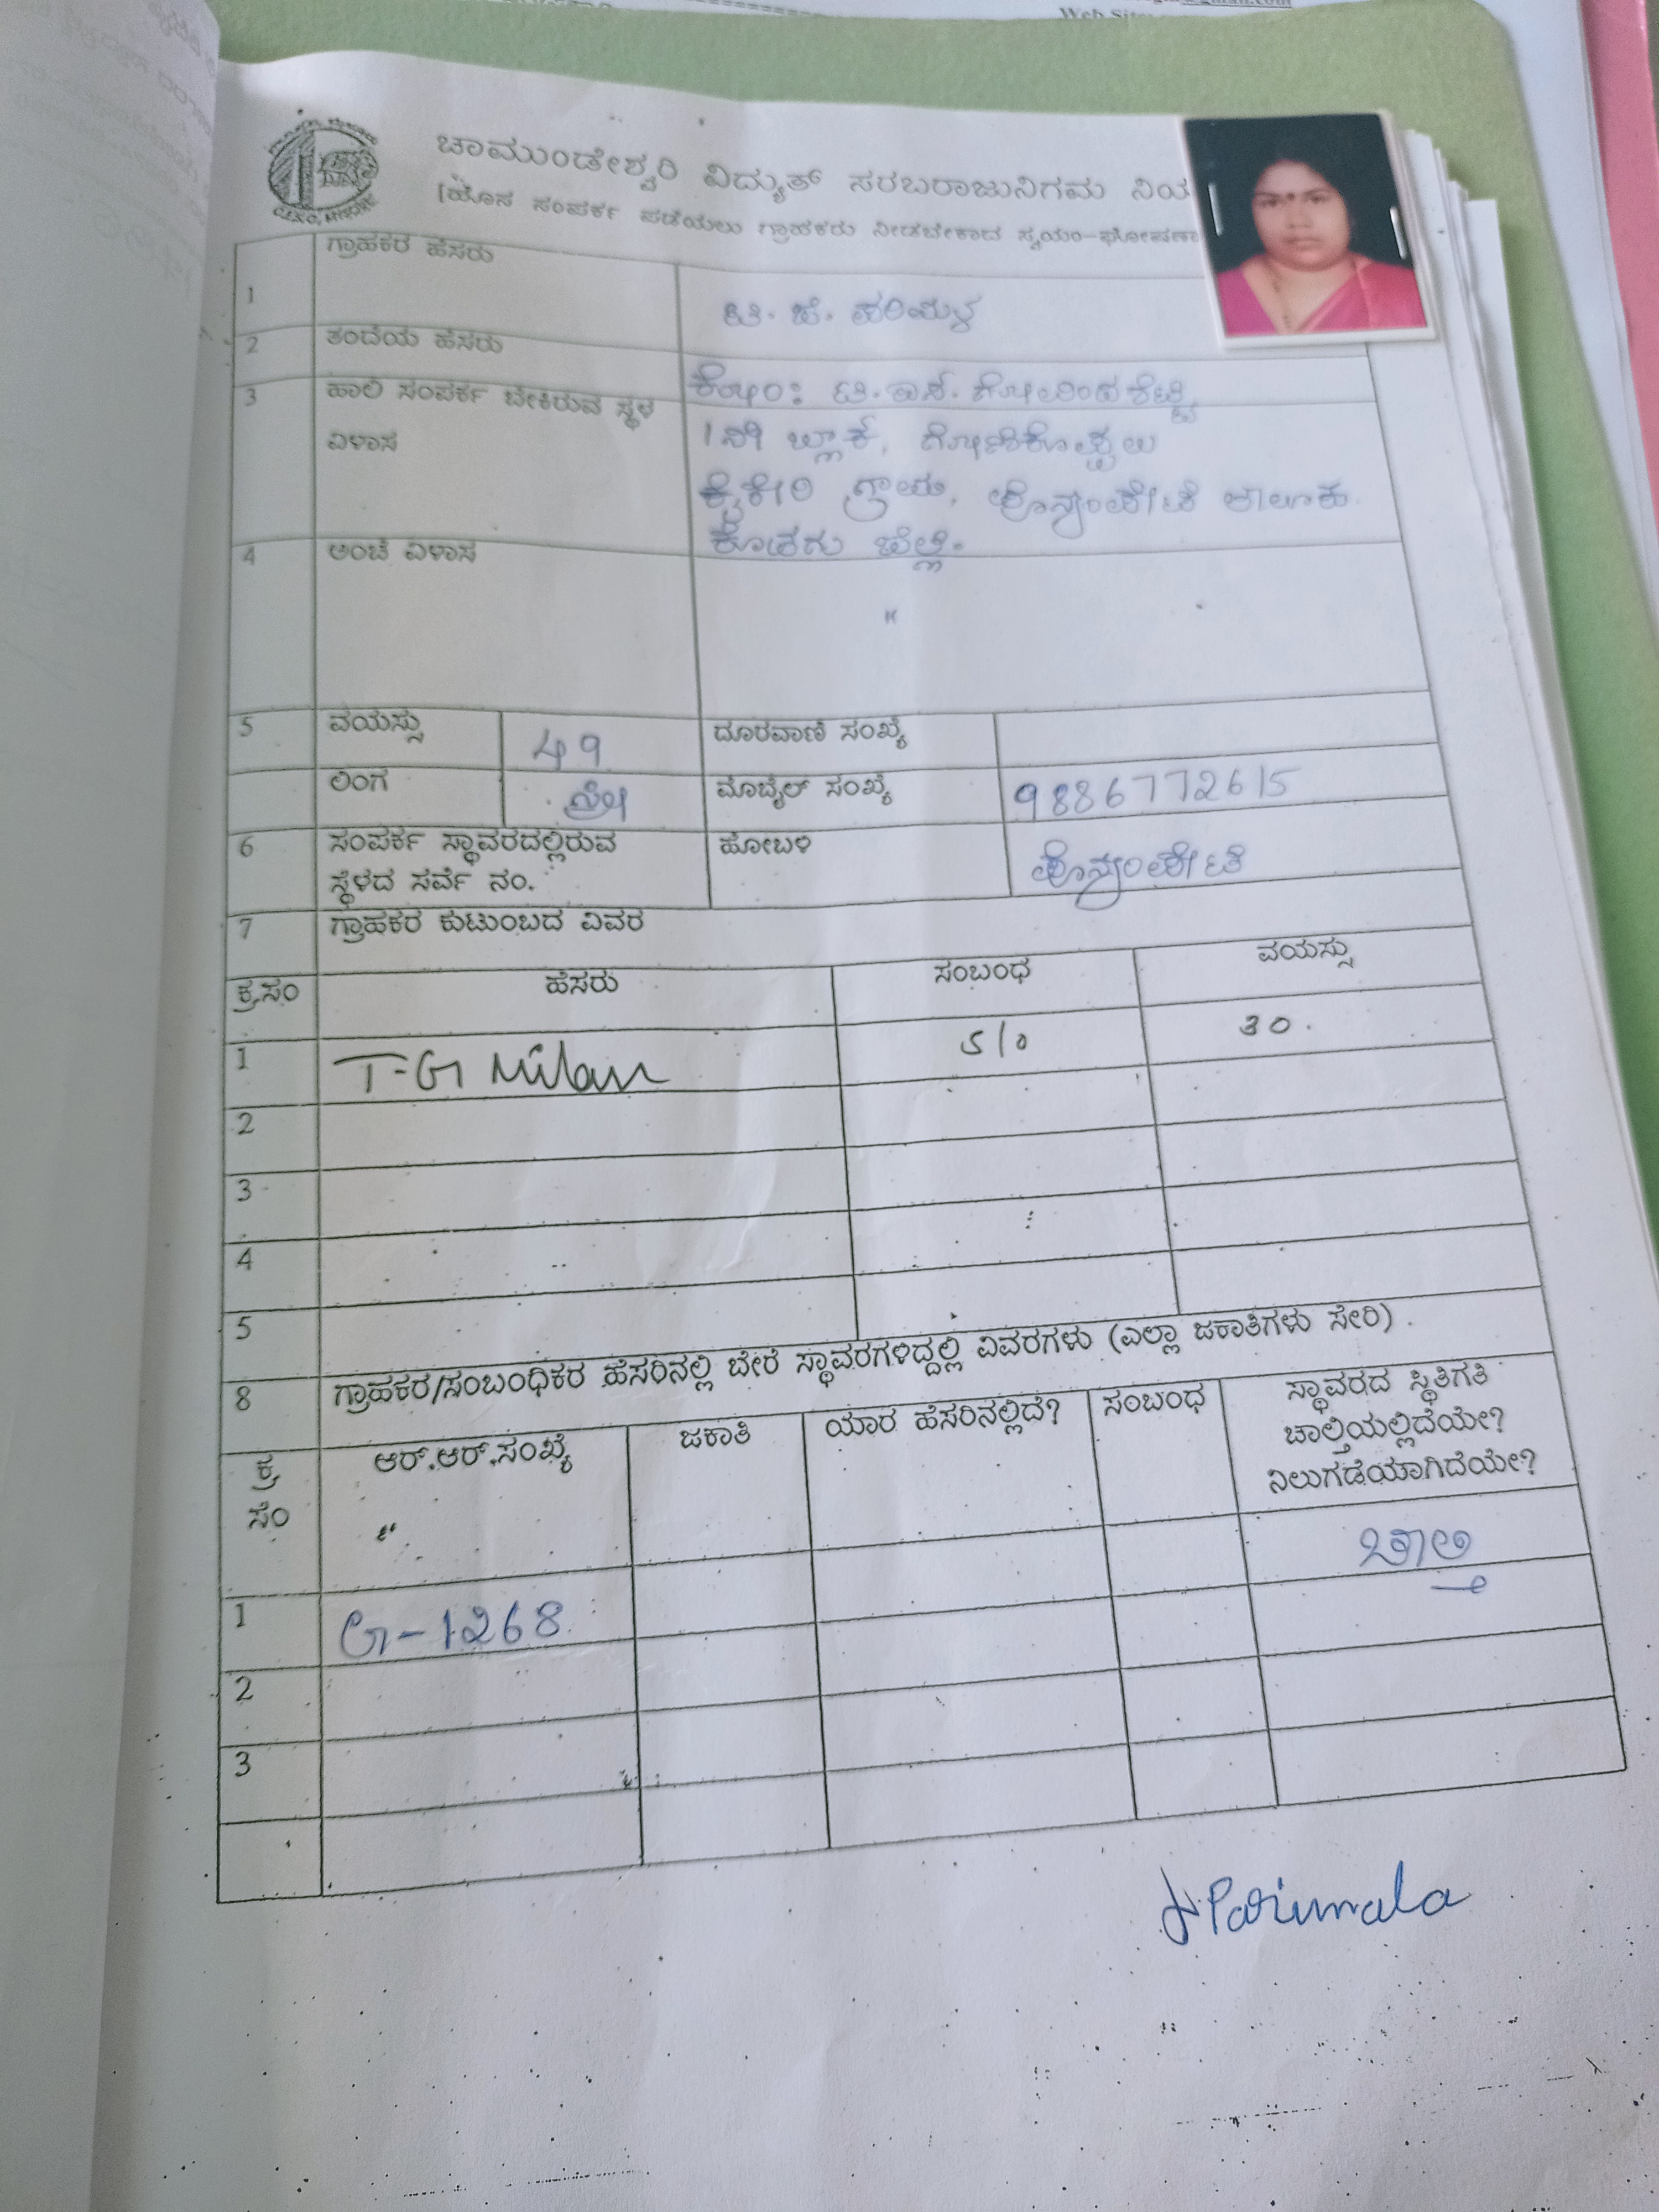 Web Site
ಚಾಮುಂಡೇಶ್ವರಿ ವಿದ್ಯುತ್ ಸರಬರಾಜುನಿಗಮ ನಿಯ
(ಹೊಸ ಸಂಪರ್ಕ ಪಡೆಯಲು ಗ್ರಾಹಕರು ನೀಡಬೇಕಾದ ಸ್ವಯಂ-ಘೋಷಣಾ
1 ಗ್ರಾಹಕರ ಹೆಸರು ಟಿ. ಜೆ. ಪರಿಮಳ
2 ತಂದೆಯ ಹೆಸರು
3 ಹಾಲಿ ಸಂಪರ್ಕ ಬೇಕಿರುವ ಸ್ಥಳ ಕೇರಾಂ: ಟಿ. ಆರ್. ಗೋವಿಂದಶೆಟ್ಟಿ
ವಿಳಾಸ 1ನೇ ಬ್ಲಾಕ್, ಗೋಣಿಕೊಪ್ಪಲು
ಕೈಕೇರಿ ಗ್ರಾಮ, ಪೊನ್ನಂಪೇಟೆ ತಾಲೂಕು.
ಕೊಡಗು ಜಿಲ್ಲೆ.
4 ಅಂಚೆ ವಿಳಾಸ
"
5 ವಯಸ್ಸು 49 ದೂರವಾಣಿ ಸಂಖ್ಯೆ
ಲಿಂಗ ಸ್ತ್ರೀ ಮೊಬೈಲ್ ಸಂಖ್ಯೆ 9886772615
6 ಸಂಪರ್ಕ ಸ್ಥಾವರದಲ್ಲಿರುವ ಹೋಬಳಿ ಪೊನ್ನಂಪೇಟೆ
ಸ್ಥಳದ ಸರ್ವೆ ನಂ.
7 ಗ್ರಾಹಕರ ಕುಟುಂಬದ ವಿವರ
ಕ್ರ.ಸಂ ಹೆಸರು ಸಂಬಂಧ ವಯಸ್ಸು
1 T-G Milan S/o 30.
2
3
4
5
8 ಗ್ರಾಹಕರ/ಸಂಬಂಧಿಕರ ಹೆಸರಿನಲ್ಲಿ ಬೇರೆ ಸ್ಥಾವರಗಳಿದ್ದಲ್ಲಿ ವಿವರಗಳು (ಎಲ್ಲಾ ಜಕಾತಿಗಳು ಸೇರಿ)
ಕ್ರ ಆರ್.ಆರ್.ಸಂಖ್ಯೆ ಜಕಾತಿ ಯಾರ ಹೆಸರಿನಲ್ಲಿದೆ? ಸಂಬಂಧ ಸ್ಥಾವರದ ಸ್ಥಿತಿಗತಿ
ಸಂ " ಚಾಲ್ತಿಯಲ್ಲಿದೆಯೇ?
ನಿಲುಗಡೆಯಾಗಿದೆಯೇ?
1 G-1268 ಚಾಲ್ತಿ
2
3
Parimala